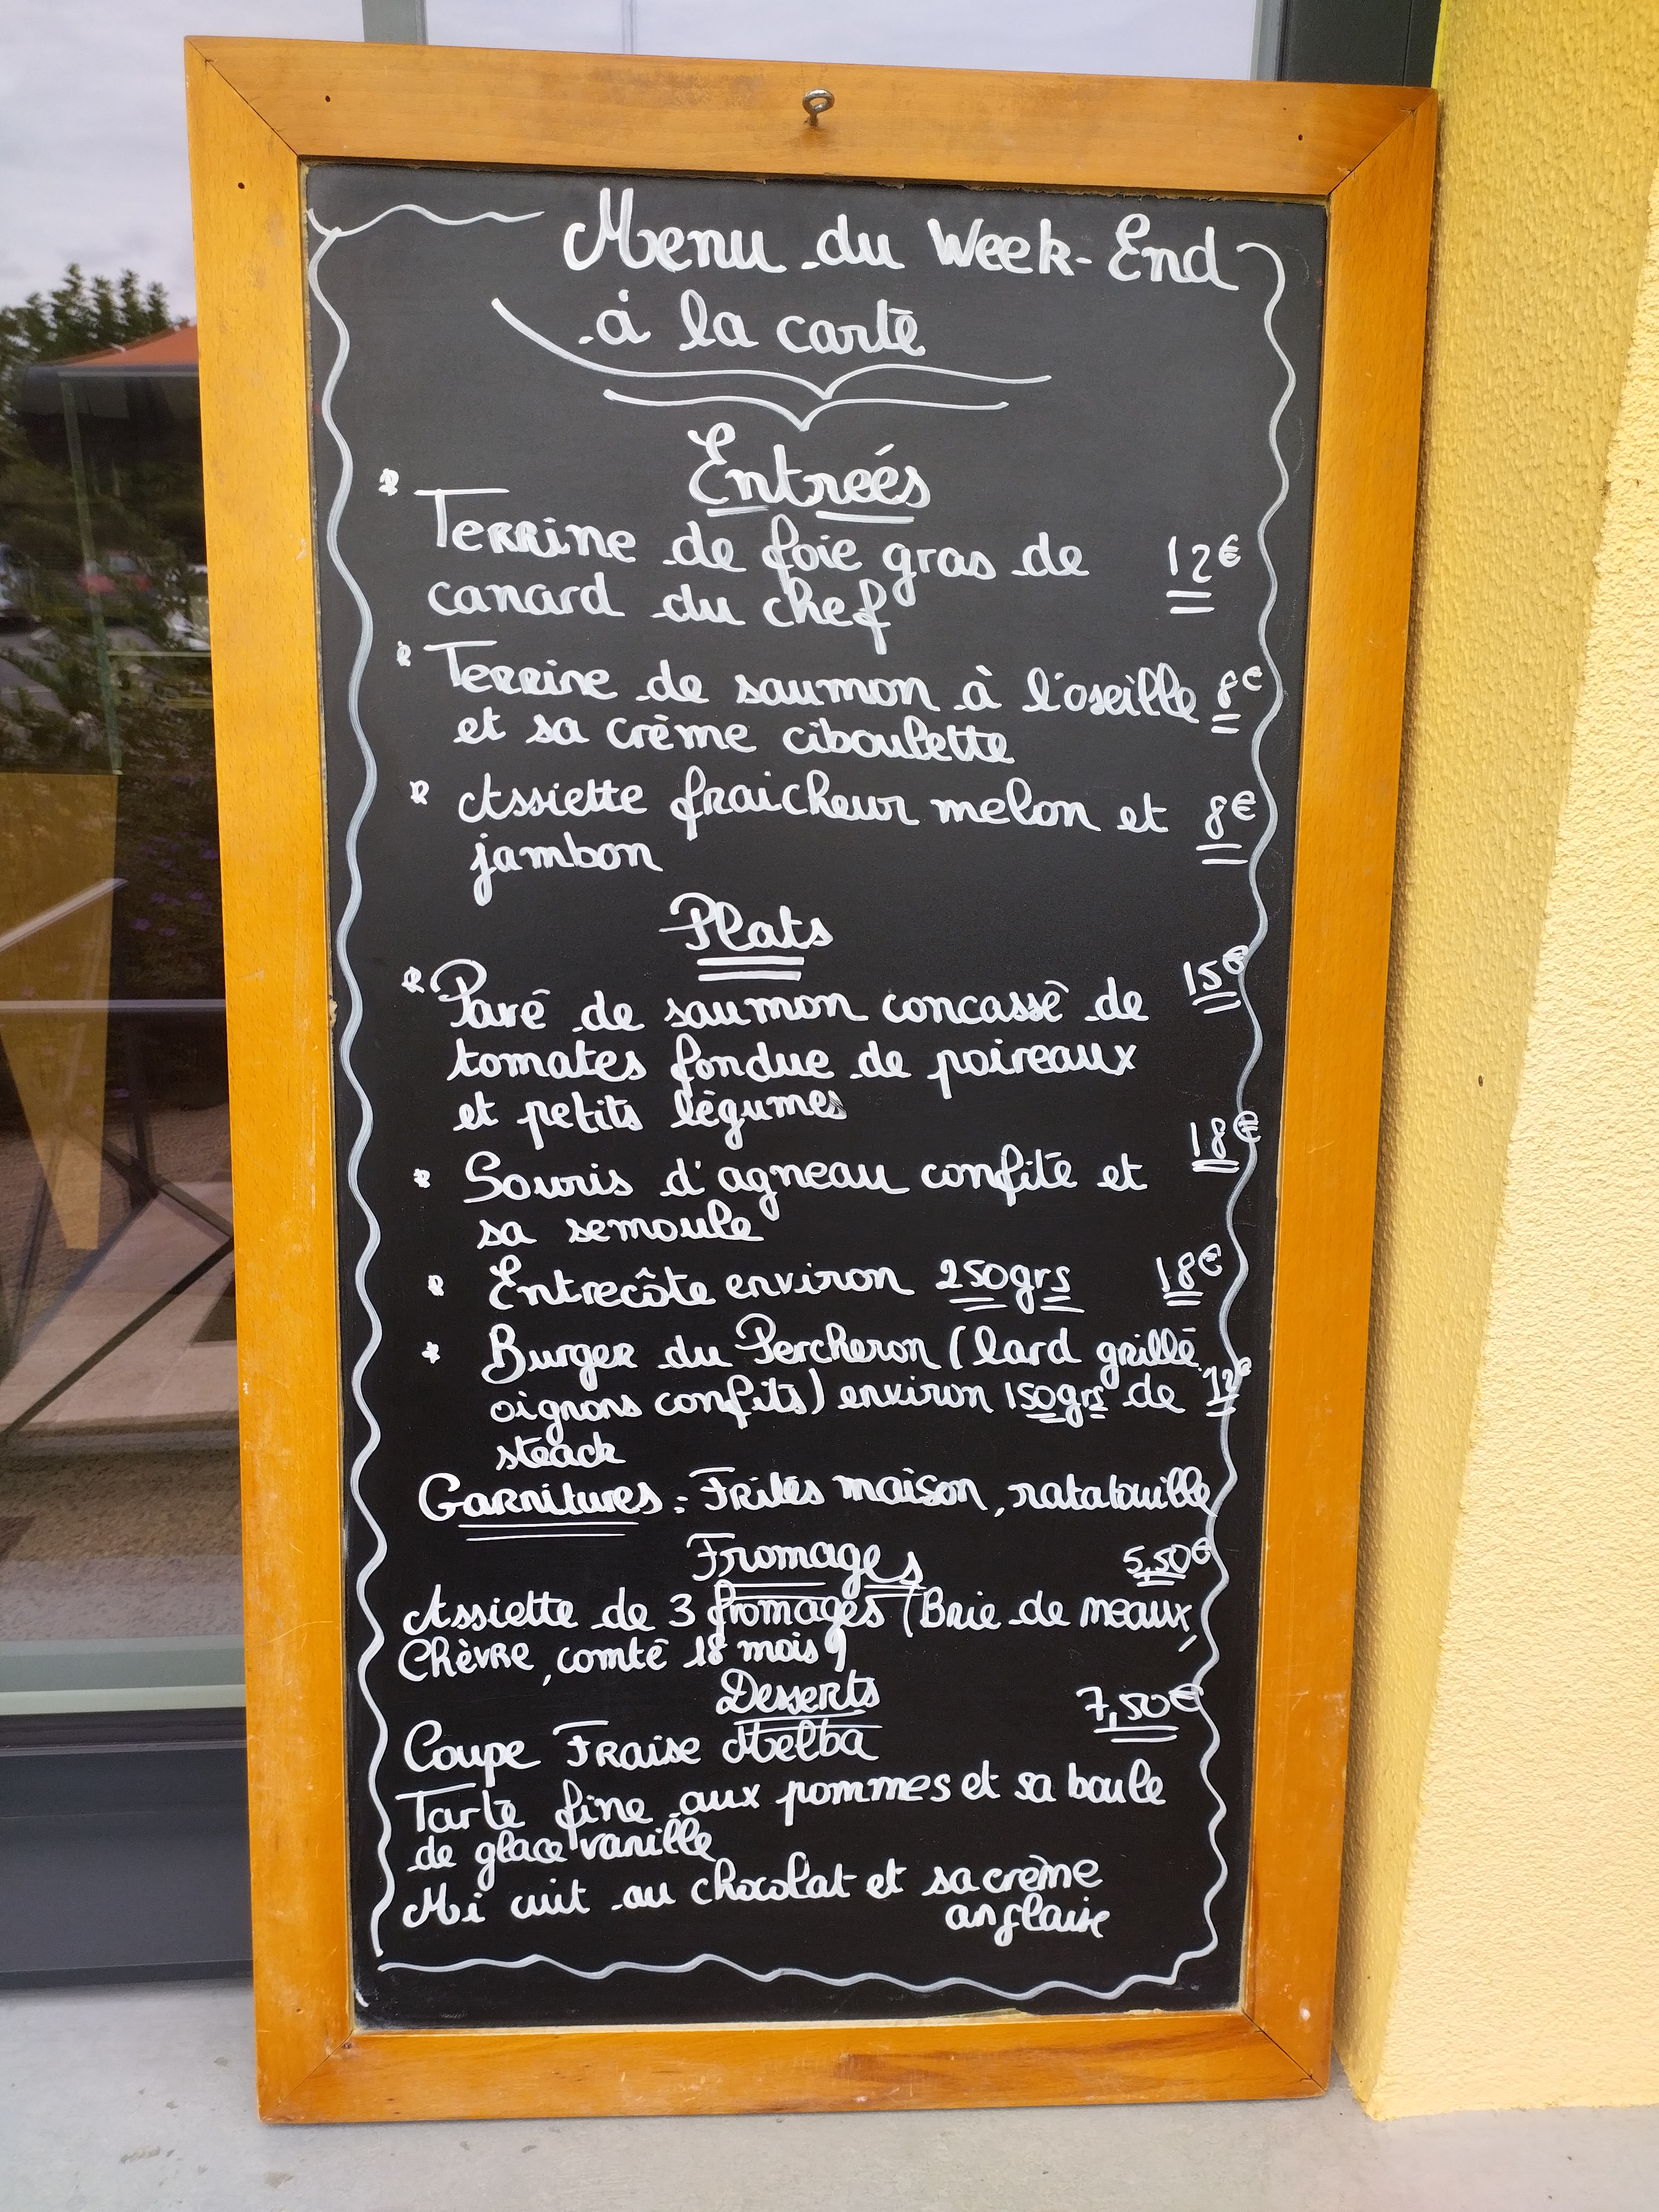 Menu du Week-End
à la carte
Entreés
* Terrine de foie gras de 12€
canard du chef
* Terrine de saumon à l'oseille 8€
et sa crème ciboulette
* Assiette fraicheur melon et 8€
jambon
Plats
* Pavé de saumon concassé de 15€
tomates fondue de poireaux
et petits légumes
* Souris d'agneau confite et 18€
sa semoule
* Entrecôte environ 250grs 18€
* Burger du Percheron (lard grillé
oignons confits) environ 150grs de 12€
steack
Garnitures : Frites maison, ratatouille
Fromages 5,50€
Assiette de 3 fromages (Brie de meaux,
Chèvre, comté 18 mois)
Desserts 7,50€
Coupe Fraise Melba
Tarte fine aux pommes et sa boule
de glace vanille
Mi cuit au chocolat et sa crème
anglaise